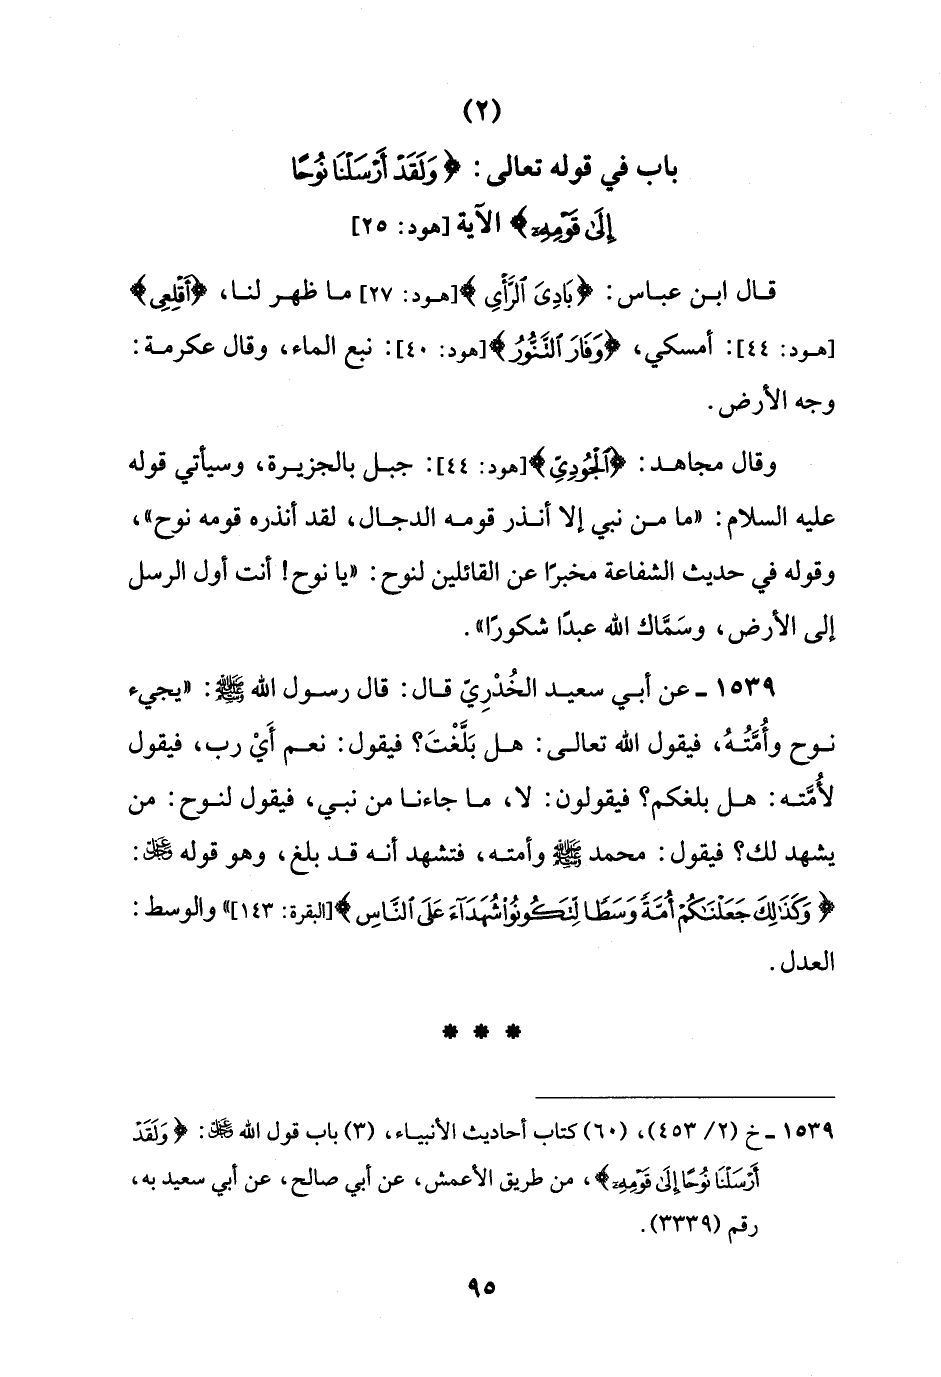 (٢)
باب في قوله تعالى: ﴿وَلَقَدْ أَرْسَلْنَا نُوحًا
إِلَىٰ قَوْمِهِۦ﴾ الآية [هود: ٢٥]
قال ابن عباس: ﴿بَادِىَ ٱلرَّأْىِ﴾[هود: ٢٧] ما ظهر لنا، ﴿أَقْلِعِى﴾
[هود: ٤٤]: أمسكي، ﴿وَفَارَ ٱلتَّنُّورُ﴾[هود: ٤٠]: نبع الماء، وقال عكرمة:
وجه الأرض.
وقال مجاهد: ﴿ٱلْجُودِىِّ﴾[هود: ٤٤]: جبل بالجزيرة، وسيأتي قوله
عليه السلام: «ما من نبي إلا أنذر قومه الدجال، لقد أنذره قومه نوح»،
وقوله في حديث الشفاعة مخبرًا عن القائلين لنوح: «يا نوح! أنت أول الرسل
إلى الأرض، وسَمَّاك الله عبدًا شكورًا».
١٥٣٩ ـ عن أبي سعيد الخُدْرِيّ قال: قال رسول الله ﷺ: «يجيء
نوح وأُمَّتُهُ، فيقول الله تعالى: هل بَلَّغْتَ؟ فيقول: نعم أَيْ رب، فيقول
لأُمَّته: هل بلغكم؟ فيقولون: لا، ما جاءنا من نبي، فيقول لنوح: من
يشهد لك؟ فيقول: محمد ﷺ وأمته، فتشهد أنه قد بلغ، وهو قوله عز وجل:
﴿وَكَذَٰلِكَ جَعَلْنَٰكُمْ أُمَّةً وَسَطًا لِّتَكُونُوا۟ شُهَدَآءَ عَلَى ٱلنَّاسِ﴾[البقرة: ١٤٣]» والوسط:
العدل.
* * *
١٥٣٩ ـ خ (٢/ ٤٥٣)، (٦٠) كتاب أحاديث الأنبياء، (٣) باب قول الله عز وجل: ﴿وَلَقَدْ
أَرْسَلْنَا نُوحًا إِلَىٰ قَوْمِهِۦ﴾، من طريق الأعمش، عن أبي صالح، عن أبي سعيد به،
رقم (٣٣٣٩).
٩٥